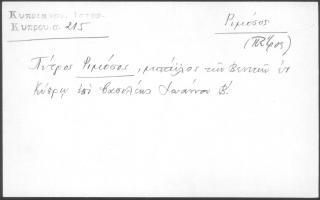 Κυπριανού, Ιστορ.
Κύπρου σ. 215
Ριμόσος
(Πέτρος)
Πέτρος Ριμόσος, μπαΐλος των Βενετών εν
Κύπρῳ επί βασιλέως Ιωάννου Β΄.